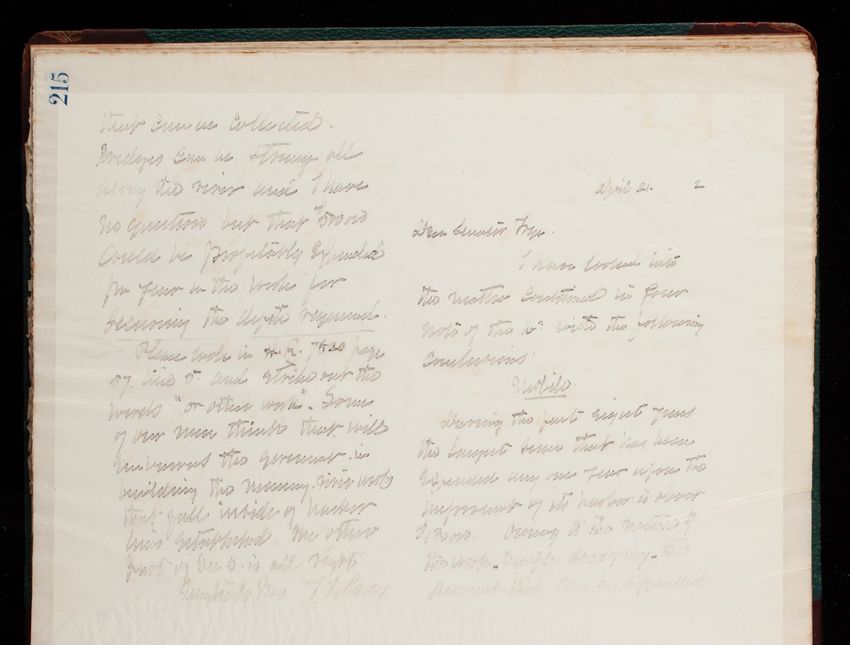 215
that can be collected.
Bridges can be strung all
along the river and I have
no question but that $500000
could be profitably expended
per year in the work for
securing the depth required.
Please look in H.R. 7820 page
57. line 5. and strike out the
words "or other work". Some
of our men think that will
embarrass the Government in
building the necessary river works
that fall inside of harbor
lines established. The other
part of Sec 5. is all right.
Very truly Yrs T L Casey
April 21. 2
Dear Senator Frye.
I have looked into
the matter contained in your
note of the with the following
conclusions.
Mobile
During the past eight years
the largest sum that has been
expended any one year upon the
improvement of its harbor is about
Owing to the nature of
the work dredging the
amount that can be expended